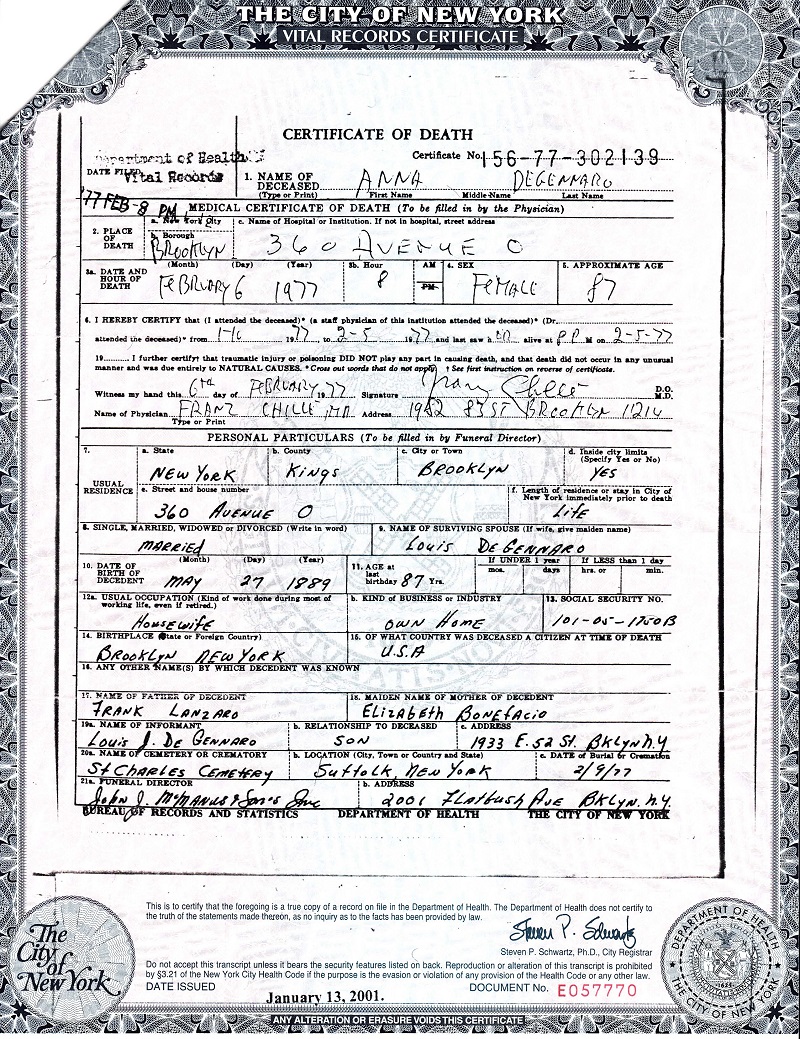 THE CITY OF NEW YORK
VITAL RECORDS CERTIFICATE
CERTIFICATE OF DEATH
Department of Health
Certificate No. 156-77-302139
DATE FILED
Vital Records
1. NAME OF DECEASED (Type or Print) ANNA DEGENNARO
First Name Middle Name Last Name
'77 FEB-8 PM
MEDICAL CERTIFICATE OF DEATH (To be filled in by the Physician)
2. PLACE OF DEATH
a. New York City
b. Borough BROOKLYN
c. Name of Hospital or Institution. If not in hospital, street address
360 AVENUE O
3a. DATE AND HOUR OF DEATH (Month) (Day) (Year) FEBRUARY 6 1977
3b. Hour 8 AM PM
4. SEX FEMALE
5. APPROXIMATE AGE 87
6. I HEREBY CERTIFY that (I attended the deceased)* (a staff physician of this institution attended the deceased)* (Dr.
attended the deceased)* from 1-16 1977 to 2-5 1977 and last saw her alive at P M on 2-5-77
19 I further certify† that traumatic injury or poisoning DID NOT play any part in causing death, and that death did not occur in any unusual
manner and was due entirely to NATURAL CAUSES. * Cross out words that do not apply. † See first instruction on reverse of certificate.
Witness my hand this 6th day of FEBRUARY 1977 Signature D.O. M.D.
Name of Physician FRANZ CHILLE, MD. Address 1982 83 ST BROOKLYN 11214
Type or Print
PERSONAL PARTICULARS (To be filled in by Funeral Director)
7. USUAL RESIDENCE
a. State NEW YORK
b. County KINGS
c. City or Town BROOKLYN
d. Inside city limits (Specify Yes or No) YES
e. Street and house number 360 AVENUE O
f. Length of residence or stay in City of New York immediately prior to death LIFE
8. SINGLE, MARRIED, WIDOWED or DIVORCED (Write in word) MARRIED
9. NAME OF SURVIVING SPOUSE (If wife, give maiden name) LOUIS DE GENNARO
10. DATE OF BIRTH OF DECEDENT (Month) (Day) (Year) MAY 27 1889
11. AGE at last birthday 87 Yrs.
If UNDER 1 year mos. days
If LESS than 1 day hrs. or min.
12a. USUAL OCCUPATION (Kind of work done during most of working life, even if retired.) HOUSEWIFE
b. KIND OF BUSINESS or INDUSTRY OWN HOME
13. SOCIAL SECURITY NO. 101-05-1750B
14. BIRTHPLACE (State or Foreign Country) BROOKLYN NEW YORK
15. OF WHAT COUNTRY WAS DECEASED A CITIZEN AT TIME OF DEATH U.S.A
16. ANY OTHER NAME(S) BY WHICH DECEDENT WAS KNOWN
17. NAME OF FATHER OF DECEDENT FRANK LANZARO
18. MAIDEN NAME OF MOTHER OF DECEDENT ELIZABETH BONEFACIO
19a. NAME OF INFORMANT LOUIS J. DE GENNARO
b. RELATIONSHIP TO DECEASED SON
c. ADDRESS 1933 E. 52 ST. BKLYN N.Y
20a. NAME OF CEMETERY OR CREMATORY ST CHARLES CEMETERY
b. LOCATION (City, Town or Country and State) SUFFOLK, NEW YORK
c. DATE of Burial or Cremation 2/9/77
21a. FUNERAL DIRECTOR John J. McManus & Sons Inc
b. ADDRESS 2001 FLATBUSH AVE BKLYN. N.Y.
BUREAU OF RECORDS AND STATISTICS DEPARTMENT OF HEALTH THE CITY OF NEW YORK
This is to certify that the foregoing is a true copy of a record on file in the Department of Health. The Department of Health does not certify to
the truth of the statements made thereon, as no inquiry as to the facts has been provided by law.
Steven P. Schwartz
Steven P. Schwartz, Ph.D., City Registrar
Do not accept this transcript unless it bears the security features listed on back. Reproduction or alteration of this transcript is prohibited
by §3.21 of the New York City Health Code if the purpose is the evasion or violation of any provision of the Health Code or any other law.
DATE ISSUED January 13, 2001.
DOCUMENT No. E057770
The City of New York
DEPARTMENT OF HEALTH THE CITY OF NEW YORK
ANY ALTERATION OR ERASURE VOIDS THIS CERTIFICATE